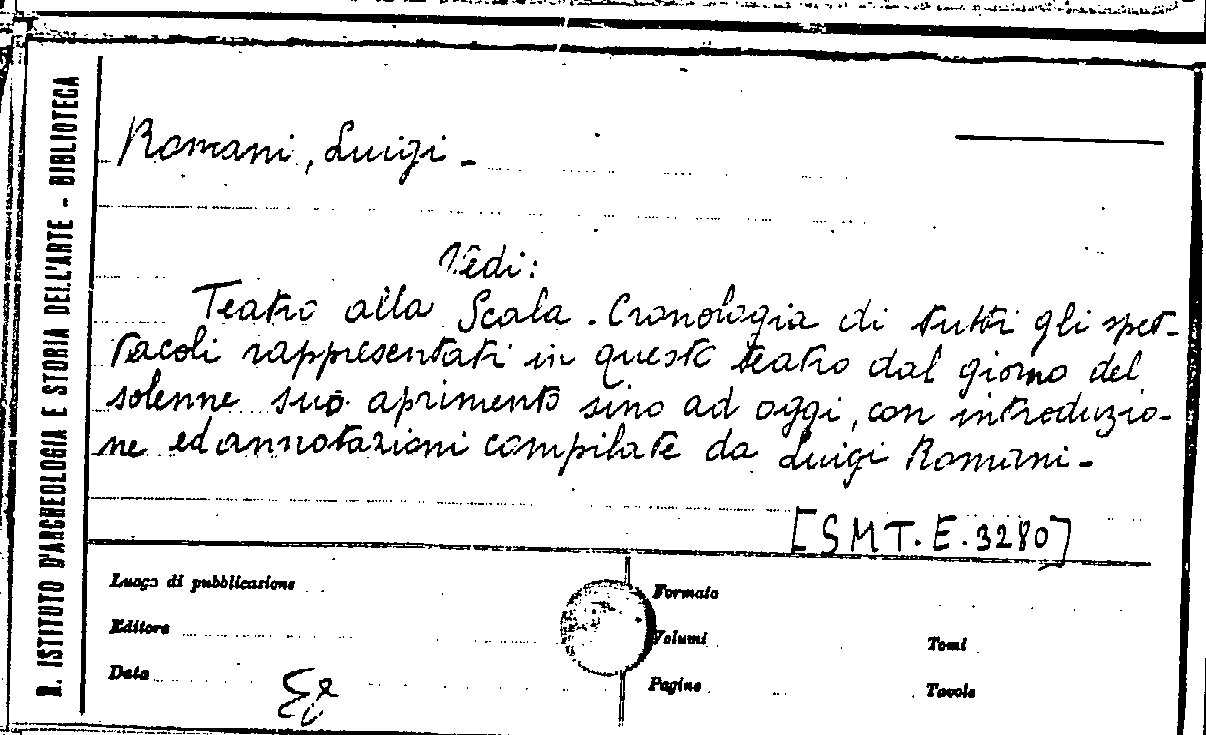 R. ISTITUTO D'ARCHEOLOGIA E STORIA DELL'ARTE - BIBLIOTECA
Romani, Luigi -
Vedi:
Teatro alla Scala. Cronologia di tutti gli spet-
tacoli rappresentati in questo teatro dal giorno del
solenne suo aprimento sino ad oggi, con introduzio-
ne ed annotazioni compilate da Luigi Romani -
[SMT. E. 3280]
Luogo di pubblicazione
Formato
Editore
Volumi
Tomi
Data
Pagine
Tavole